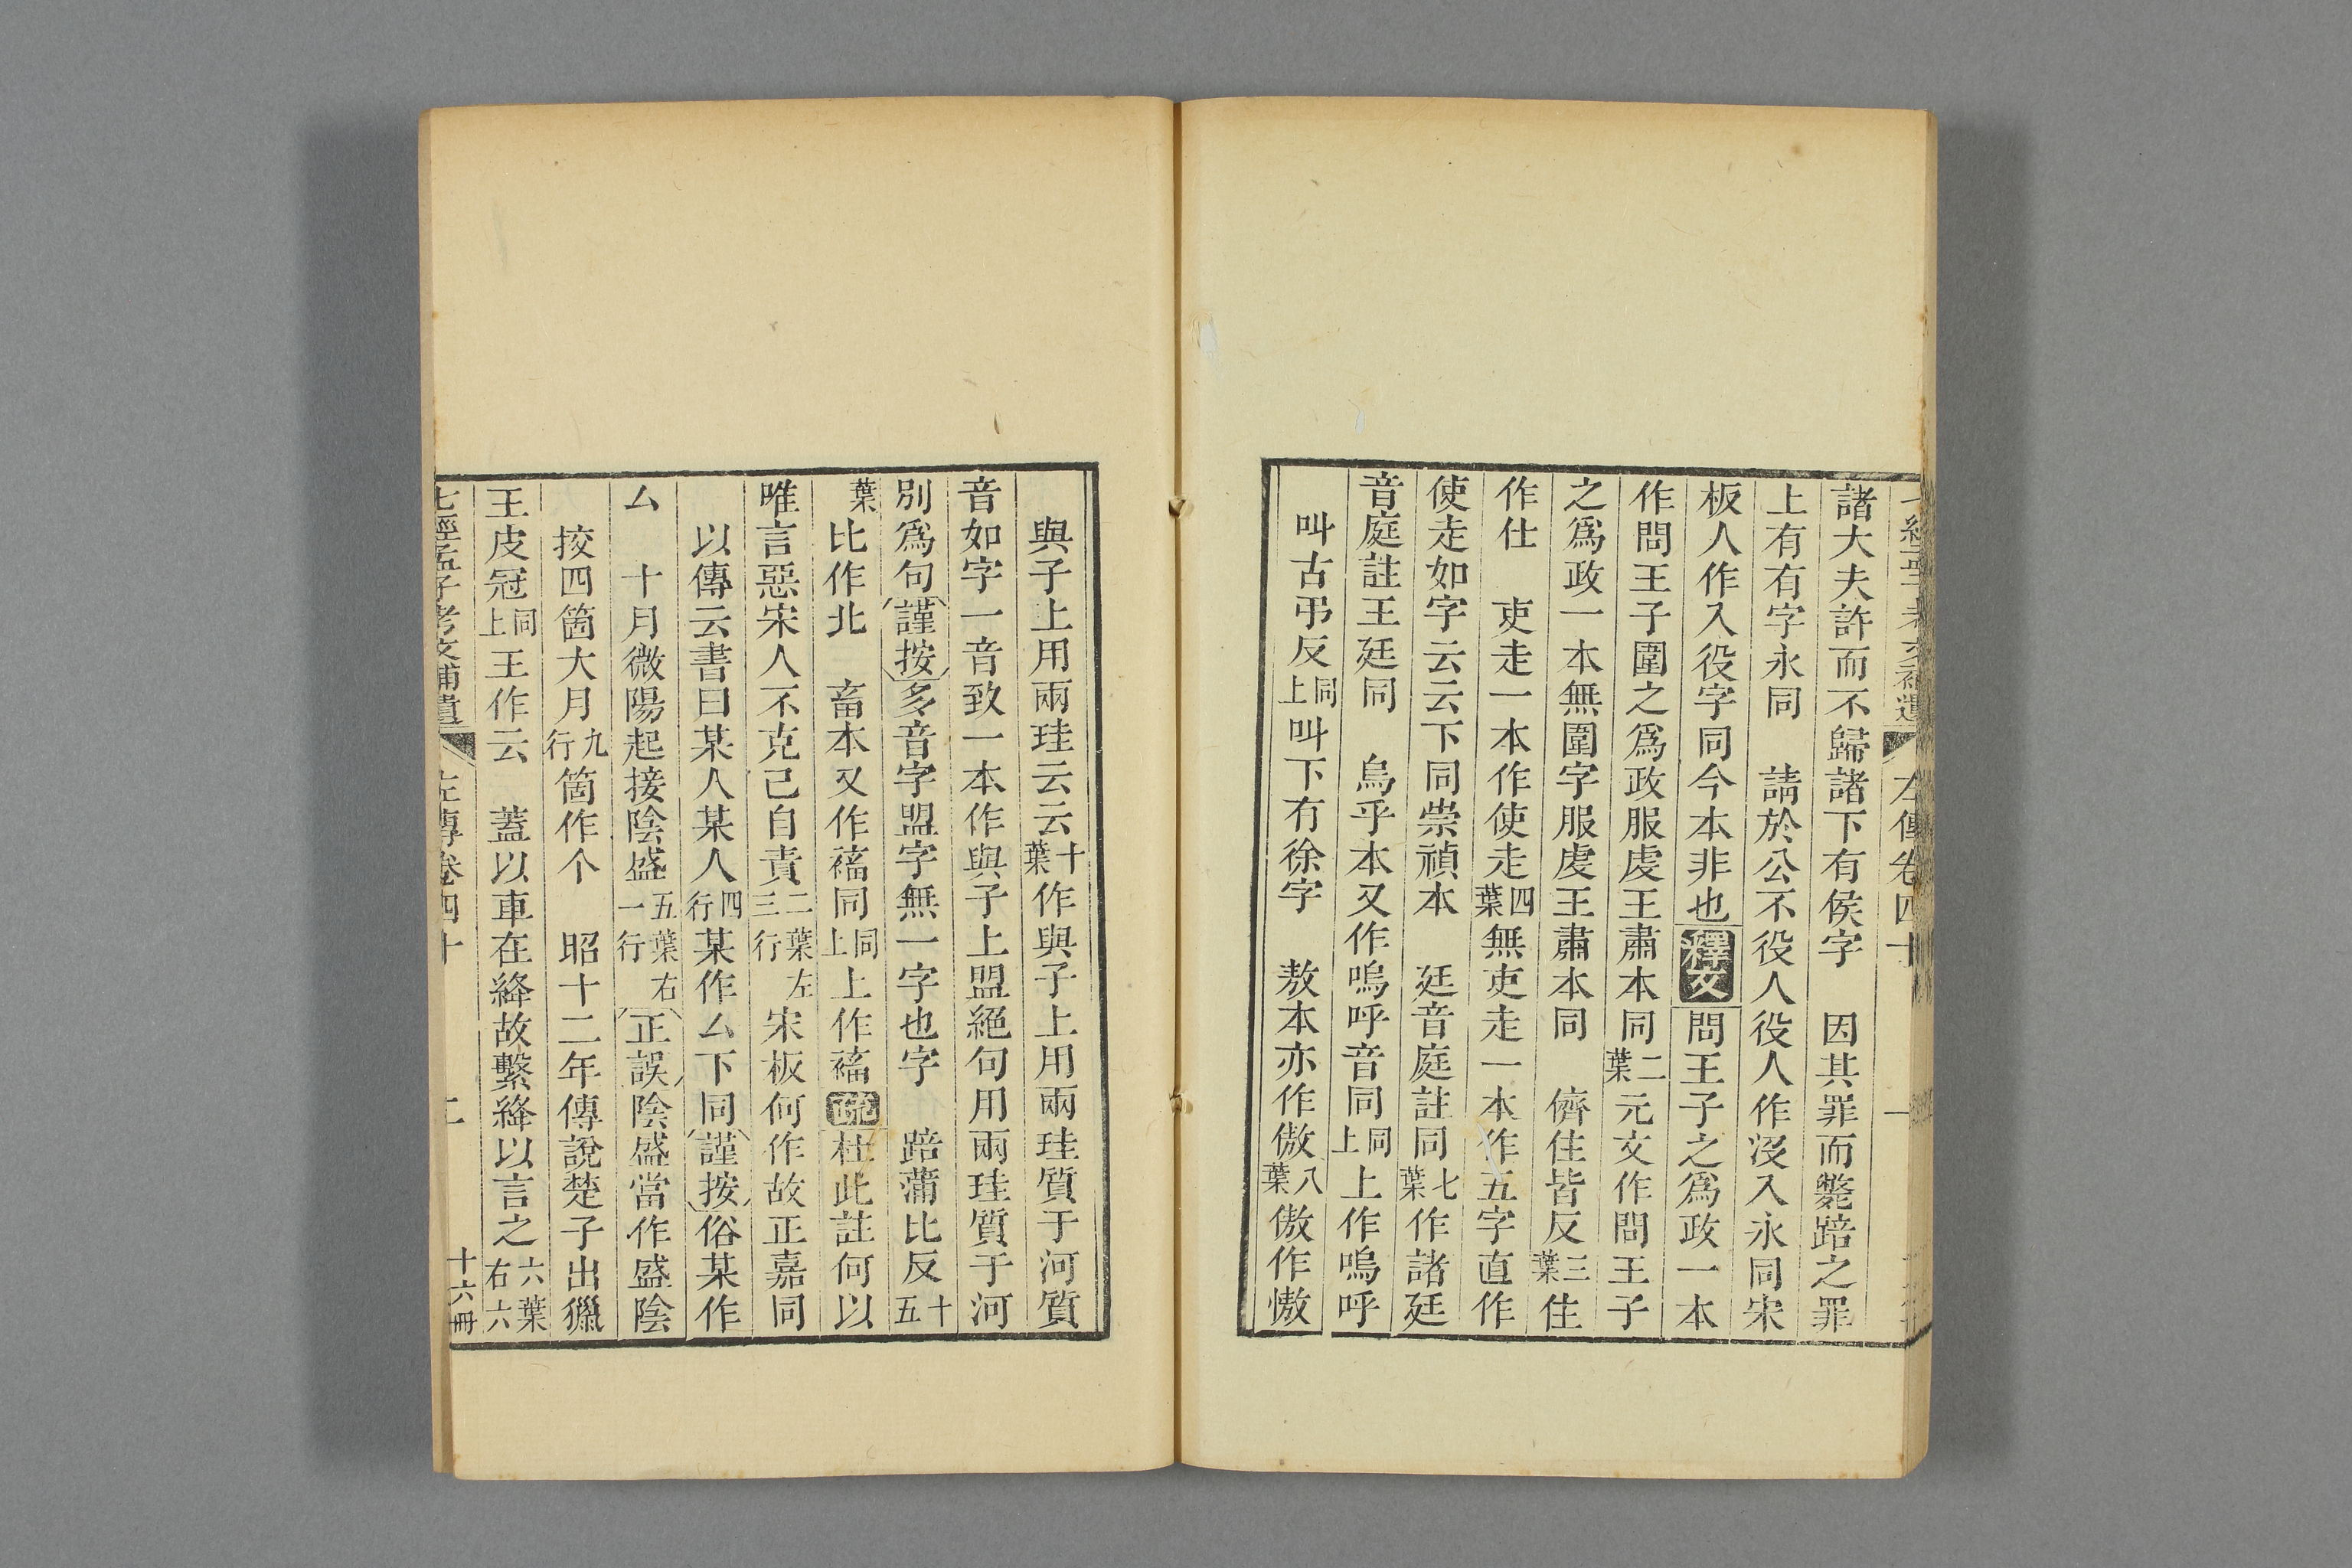 諸大夫許而不歸諸下有侯字　因其罪而斃踣之罪
上有有字永同　請於公不役人役人作沒入永同宋
板人作入役字同今本非也釋文問王子之爲政一本
作問王子圍之爲政服虔王肅本同二葉元文作問王子
之爲政一本無圍字服虔王肅本同　儕住皆反三葉住
作仕　吏走一本作使走四葉無吏走一本作五字直作
使走如字云云下同崇禎本　廷音庭註同七葉作諸廷
音庭註王廷同　烏乎本又作嗚呼音同同上上作嗚呼
叫古弔反同上叫下有徐字　敖本亦作傲八葉傲作慠
與子上用兩珪云云十葉作與子上用兩珪質于河質
音如字一音致一本作與子上盟絕句用兩珪質于河
別爲句謹按多音字盟字無一字也字　踣蒲比反十五
葉比作北　畜本又作蓄同同上上作蓄疏杜此註何以
唯言惡宋人不克己自責二葉左三行宋板何作故正嘉同
以傳云書曰某人某人四行某作厶下同謹按俗某作
厶　十月微陽起接陰盛五葉右一行正誤陰盛當作盛陰
挍四箇大月九行箇作个　昭十二年傳說楚子出獵
王皮冠同上王作云　蓋以車在絳故繫絳以言之六葉右六
七經孟子考文補遺　左傳卷四十　二　十六冊